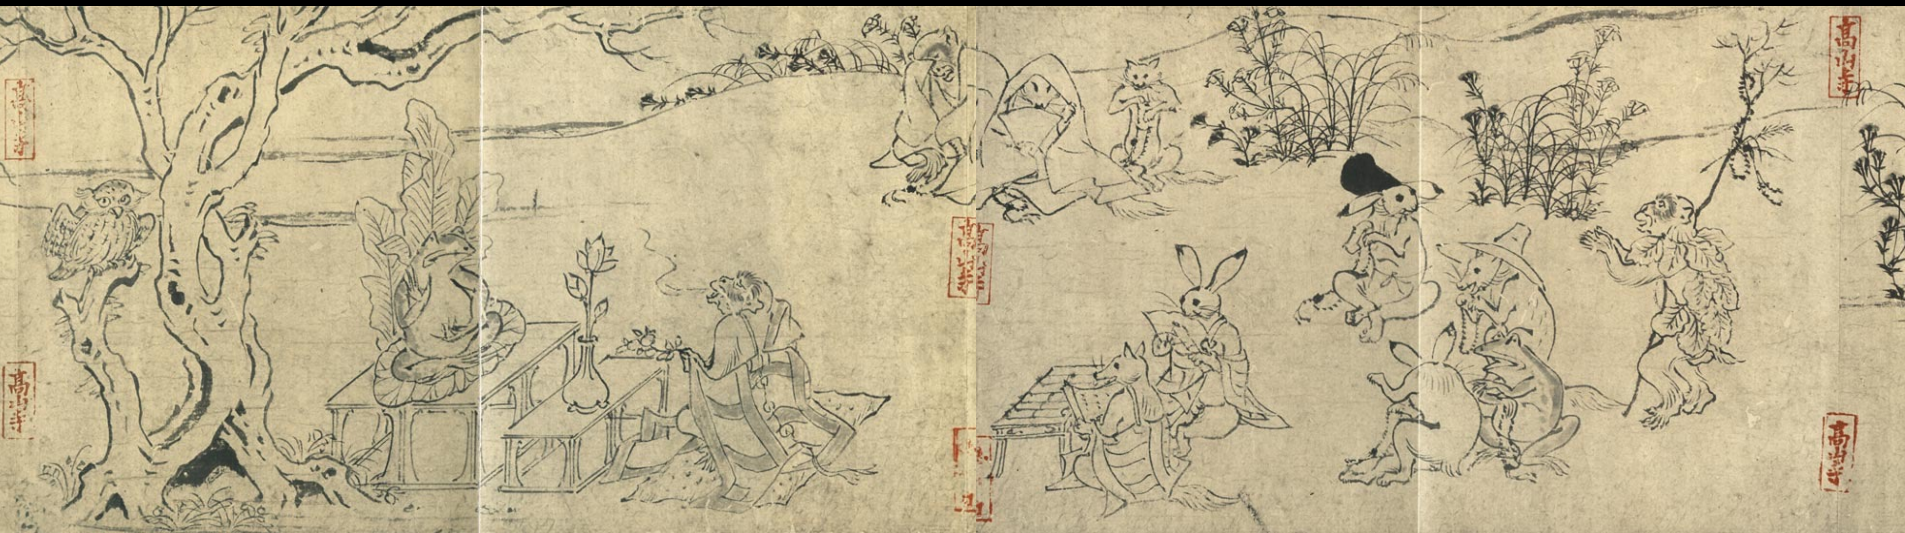 高山寺
高山寺
高山寺
高山寺
高山寺
高山寺